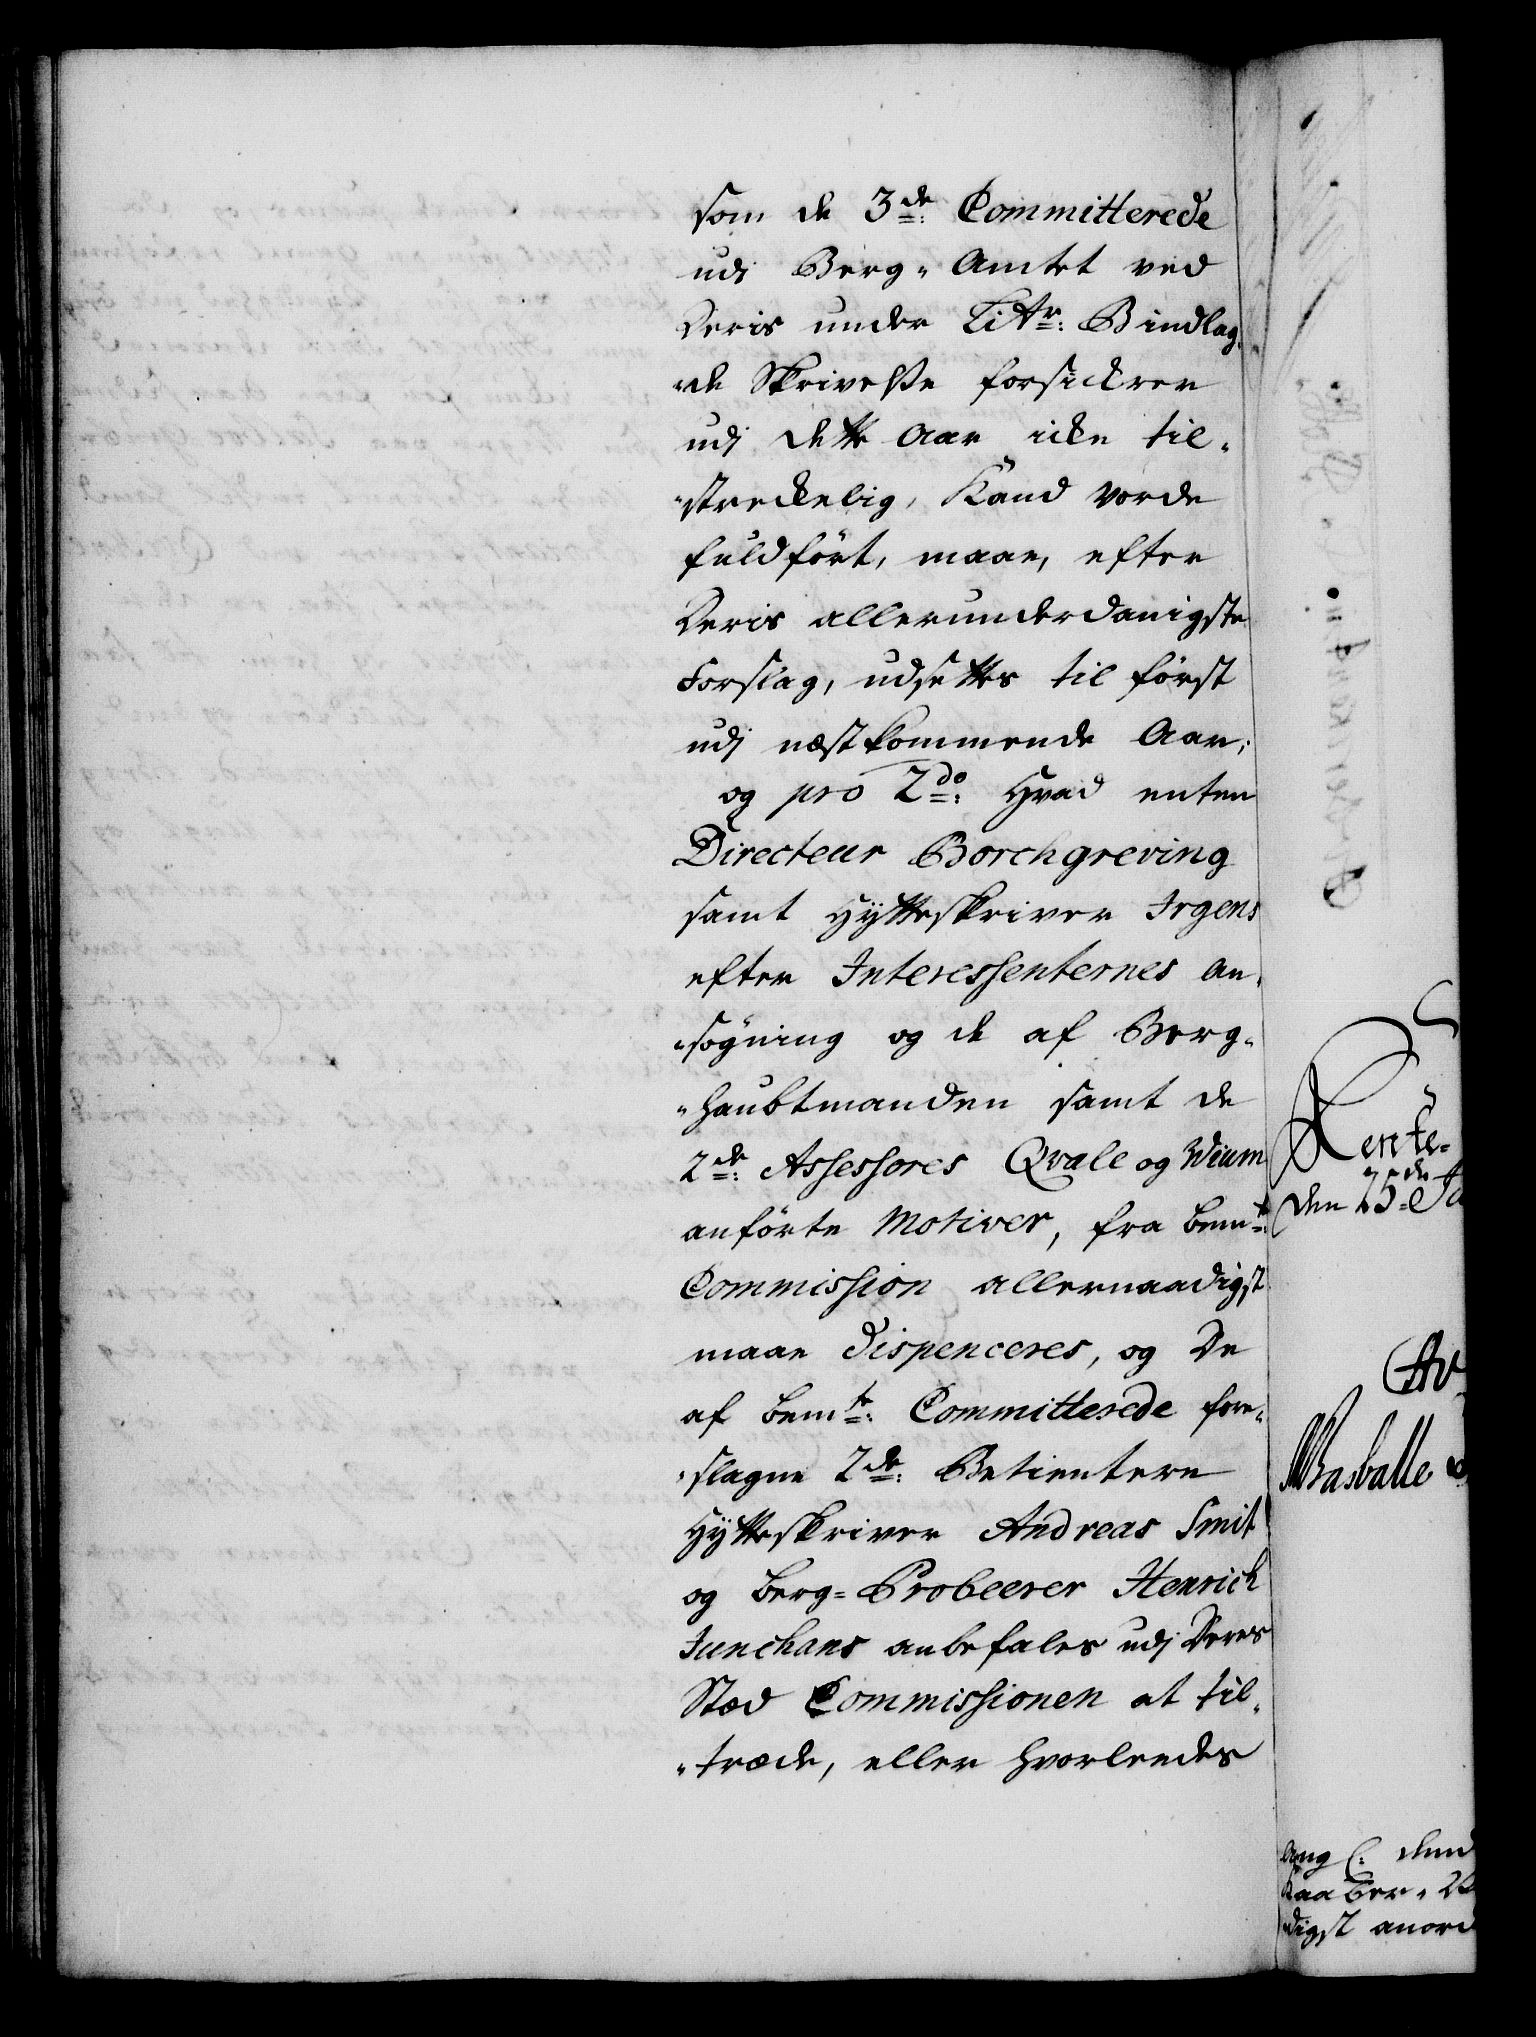 som de 3de: Committerede
udi Berg-Amtet ved
Deris under Litr: B indlag,
"de Skrivelsse forsickrer
udj dette Aar icke til,
"streckelig, Kand vorde
fuldført, maae, efter
Deris allerunderdanigste
Forslag, udsettes til først
udj næstkommende Aar;
og pro 2do: Hvad enten
Directeur Borchgreving
samt Hytteskriver Irgens
efter Interessenternes An,
"søgning og de af Berg-
"haubtmanden samt de
2de: Assessores Qvale og Wium
anførte Motiver, fra bemte:
Commission allernaadigst
maae dispenceres, og De
af bemte: Committerede fore,
"slagne 2de: Betientere
Hytteskriver Andreas Smit
og Berg-Probeerer Henrich
Junchans anbefales udj Deres
Stæd Commissionen at til,
"træde, eller hvorleedes
Rente-
den 25de Ja
ang
Kaaber-
digst anord